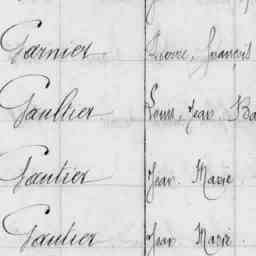 Garnier Pierre, François
Gaultier Louis, Jean Ba
Gautier Jean Marie
Gautier Jean Marie